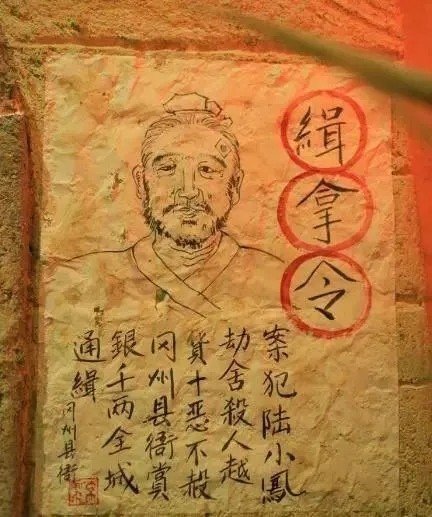 緝拿令
案犯陆小鳳
劫舍殺人越
貨十恶不殺
冈州县衙賞
銀千两全城
通緝
冈州县衙